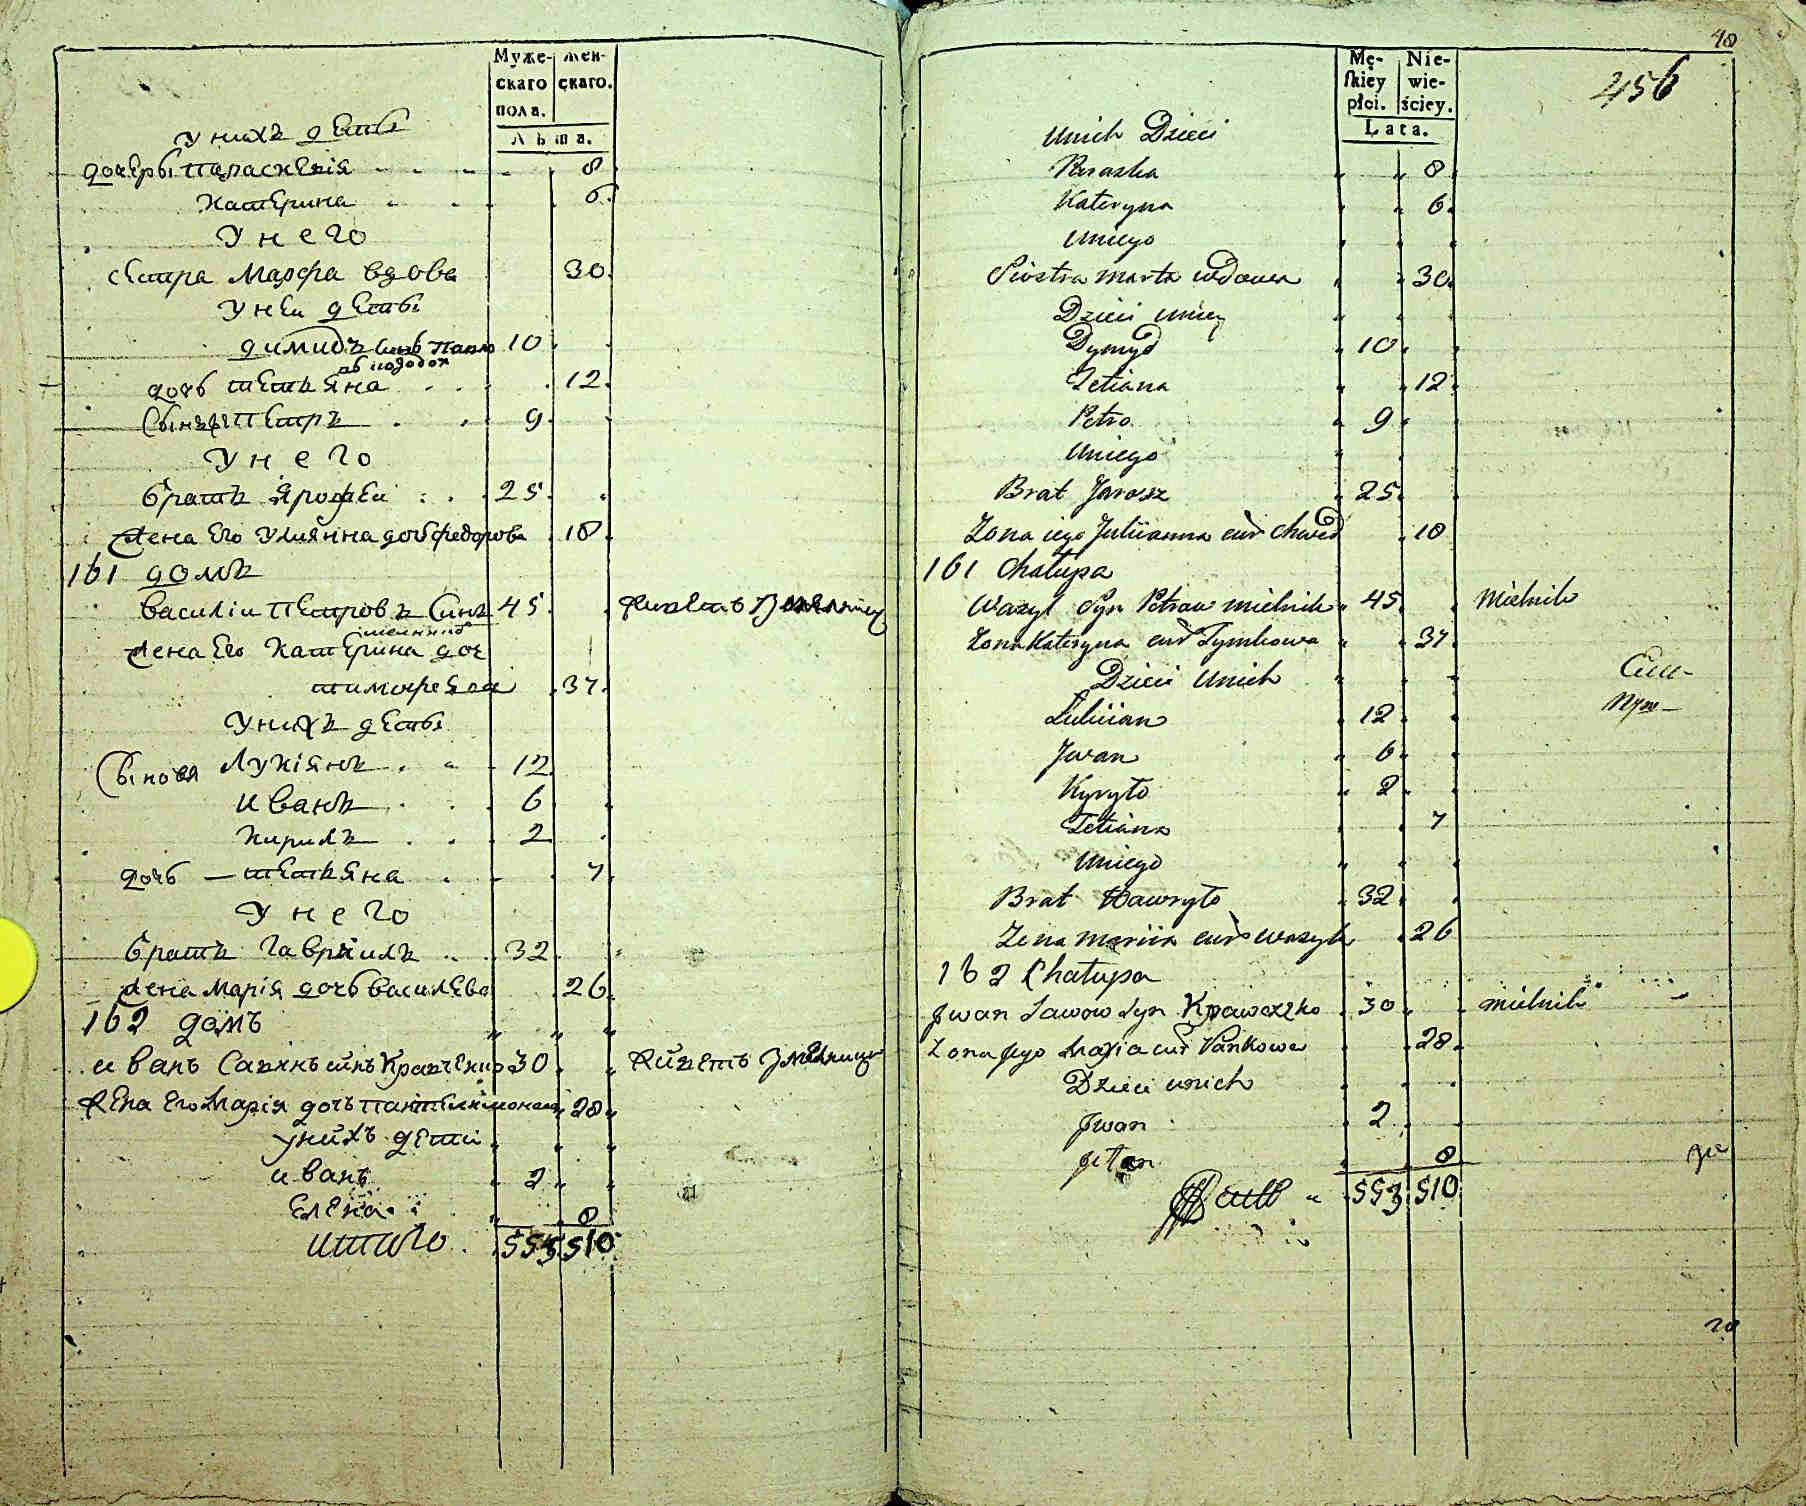 Муже-
скаго
пола.
Жен-
скаго.
Лѣта.
У нихъ дети
дочеры Параскевія 8
Катерина 6
У него
сестра Марфа вдова 30
У неи дети
димидъ синъ Павло 10
дочь Тетьяна 12
Сынъ Петръ 9
У него
братъ Ярофеи 25
жена Его Улиянна дочь федорова 18
161 домъ
Василіи Петровъ Синъ 45 живетъ
жена Его Катерина доч
тимофеева 37
У нихъ дети
Сыновя Лукіянъ 12
иванъ 6
кирилъ 2
дочь — тетьяна 7
У него
братъ Гаврыилъ 32
жена Марія дочь василева 26
162 домъ
иванъ Савинъ синъ Кравченко 30 живетъ
жена Его Марія дочь 28
унихъ дети
иванъ 2
Елена 8
итого 553 510
40
456
Mę-
skiey
płci.
Nie-
wie-
ściey.
Lata.
Unich Dzieci
Paraska 8
Kateryna 6
Uniego
Siostra marta wdowa 30
Dzieci Uniey
Dymyd 10
Tetiana 12
Petro 9
Uniego
Brat Jarosz 25
Zona iego Juliianna cur Chwed 18
161 Chałupa
Wasyl Syn Petrow mielnik 45 Mielnik
Zona Kateryna cur Tymkowa 37
Dzieci Unich
Lukiian 12
Jwan 6
Kyryło 2
Tetiana 7
Uniego
Brat Hawryło 32
Zona mariia cur wasyla 26
162 Chałupa
Jwan Sawow Syn Krawczko 30 mielnik
Zona Jego Maria cur Pankowa 28
Dzieci unich
Jwan 2
8
553 510